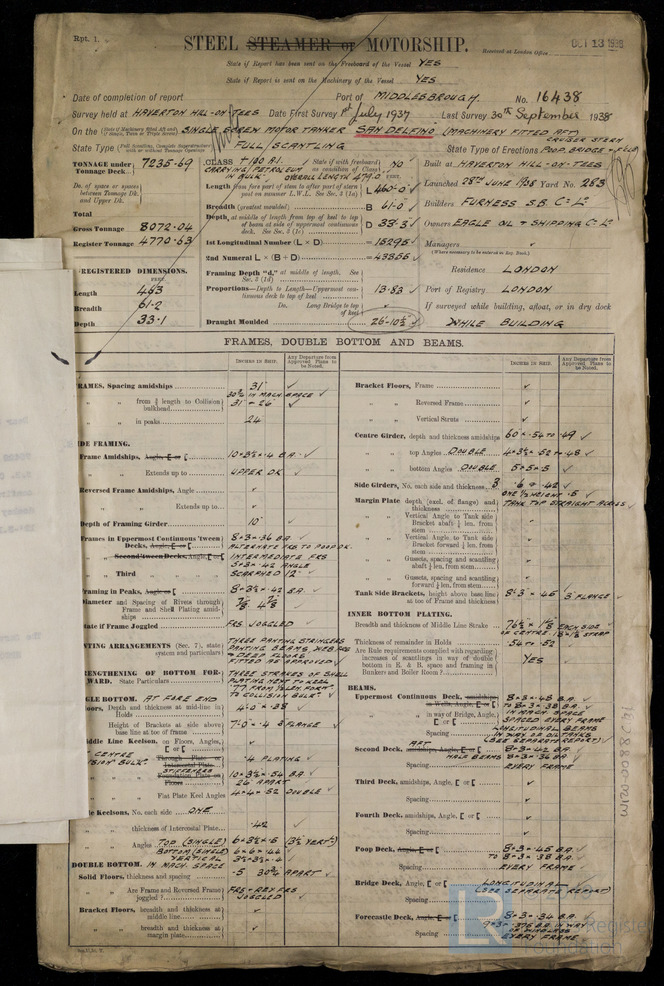 Rpt. 1.
STEEL STEAMER or MOTORSHIP.
Received at London Office OCT 13 1938
State if Report has been sent on the Freeboard of the Vessel YES
State if Report is sent on the Machinery of the Vessel YES
Date of completion of report Port of MIDDLESBROUGH. No. 16438
Survey held at HAVERTON HILL-ON-TEES Date First Survey 1st July 1937 Last Survey 30th September 1938
On the SINGLE SCREW MOTOR TANKER SAN DELFINO (MACHINERY FITTED AFT)
CRUISER STERN
State Type FULL SCANTLING State Type of Erections POOP, BRIDGE & F'CLE
TONNAGE under Tonnage Deck 7235.69
CLASS +100 A1. State if with freeboard as condition of Class NO
CARRYING PETROLEUM IN BULK. OVERALL LENGTH
Built at HAVERTON HILL-ON-TEES
Length from fore part of stem to after part of stern post on summer L.W.L. See Sec. 3 (1a) L 460'-0"
Launched 28TH JUNE 1938 Yard No. 283
Breadth (greatest moulded) B 61.0
Builders FURNESS S.B. Co Ld
Total
Gross Tonnage 8072.04
Register Tonnage 4770.63
Depth, at middle of length from top of keel to top of beam at side of uppermost continuous deck. See Sec. 3 (1c) D
Owners EAGLE OIL & SHIPPING Co Ld
1st Longitudinal Number (L × D)
Managers
2nd Numeral L × (B + D)
Residence LONDON
Framing Depth "d," at middle of length. See Sec. 3 (1d)
Proportions—Depth to Length—Uppermost continuous deck to top of keel 13.83
Port of Registry LONDON
Do. Long Bridge to top of keel
If surveyed while building, afloat, or in dry dock
Draught Moulded 26'-10½"
WHILE BUILDING
REGISTERED DIMENSIONS.
FEET.
Length 463
Breadth 61.2
Depth 33.1
FRAMES, DOUBLE BOTTOM AND BEAMS.
INCHES IN SHIP. Any Departure from Approved Plans to be Noted.
FRAMES, Spacing amidships 31"
30¾ IN MACH SPACE
from ⅗ length to Collision bulkhead
in peaks 24
SIDE FRAMING.
Frame Amidships, Angle, E or [
Extends up to UPPER DK
Reversed Frame Amidships, Angle
Extends up to
Depth of Framing Girder 10"
Frames in Uppermost Continuous 'tween Decks, Angle, E or [ 8×3×.36 B.A.
ALTERNATE FRS TO POOP DK.
Second 'tween Decks, Angle, E or [ INTERMEDIATE FRS
Third SCARPHED 12"
Framing in Peaks, Angle, E or [ 8×3½×.42 B.A.
Diameter and Spacing of Rivets through Frame and Shell Plating amidships ⅞ 4⅞
State if Frame Joggled FRS JOGGLED
PANTING ARRANGEMENTS (Sec. 7), state system and particulars
THREE PANTING STRINGERS
PANTING BEAMS, WEB FRS
& DEEP FLOORS
FITTED AS APPROVED
STRENGTHENING OF BOTTOM FORWARD. State Particulars
THREE STRAKES OF SHELL
PLATING NEXT TO KEEL
.77 FROM ⅕ LEN FORWD
TO COLLISION BULKD
SINGLE BOTTOM. AT FORE END
Floors, Depth and thickness at mid-line in Holds 4'-0" × .38
Height of Brackets at side above base line at toe of frame 7'-0" × .4 3" FLANGE
Middle Line Keelson, on Floors, Angles, E or [
Through Plate or Intercostal Plate .4 PLATING
STIFFENERS 10×3½×.54 B.A.
26" APART
Flat Plate Keel Angles 4×4×.52 DOUBLE
Side Keelsons, No. each side ONE
thickness of Intercostal Plate .42
Angles TOP (SINGLE)
BOTTOM (SINGLE) 6×6×.44
VERTICAL
DOUBLE BOTTOM. IN MACH. SPACE
Solid Floors, thickness and spacing .5 30¾ APART
Are Frame and Reversed Frame joggled? FRS - REV FRS JOGGLED
Bracket Floors, breadth and thickness at middle line
breadth and thickness at margin plate
Bracket Floors, Frame
Reversed Frame
Vertical Struts
Centre Girder, depth and thickness amidships 60 × .54 TO .49
top Angles DOUBLE 4×3½×.52 TO .48
bottom Angles DOUBLE 5×5×.5
Side Girders, No. each side and thickness 3 .6 & .42
ONE ½ HEIGHT .5
Margin Plate depth (excl. of flange) and thickness TANK TOP STRAIGHT ACROSS
Vertical Angle to Tank side Bracket abaft ¼ len. from stem
Vertical Angle to Tank side Bracket forward ¼ len. from stem
Gussets, spacing and scantling abaft ¼ len. from stem
Gussets, spacing and scantling forward ¼ len. from stem
Tank Side Brackets, height above base line at toe of Frame and thickness 3" FLANGE
INNER BOTTOM PLATING.
Breadth and thickness of Middle Line Strake
Thickness of remainder in Holds .54 TO .52
Are Rule requirements complied with regarding increases of scantlings in way of double bottom in E. & B. space and framing in Bunkers and Boiler Room? YES
BEAMS.
Uppermost Continuous Deck, amidships 8×3×.45 B.A.
TO 8×3×.38 B.A.
IN MACH SPACE
SPACED EVERY FRAME
in way of Bridge, Angle, E or [ LONGITUDINAL BEAMS
IN WAY OF OIL TANKS
Spacing (SEE SEPARATE REPORT)
Second Deck, AFT 8×3×.42 B.A.
HALF BEAMS 8×3×.36 B.A.
Spacing EVERY FRAME
Third Deck, amidships, Angle, E or [
Spacing
Fourth Deck, amidships, Angle, E or [
Spacing
Poop Deck, Angle, E or [ 8×3×.45 B.A.
TO 8×3×.38 B.A.
Spacing EVERY FRAME
Bridge Deck, Angle, E or [ LONGITUDINAL
(SEE SEPARATE REPORT)
Spacing
Forecastle Deck, Angle, E or [ 8×3×.34 B.A.
IN WAY OF WINDLASS
Spacing EVERY FRAME
LR